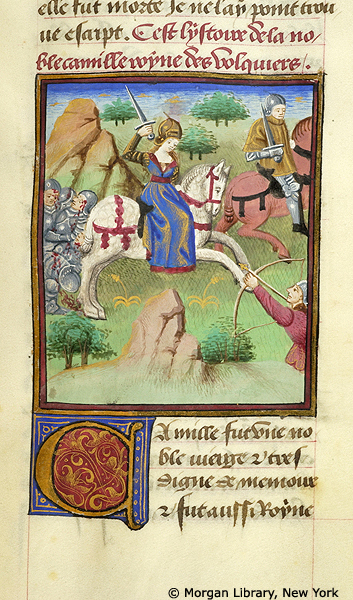 elle fut morte Je ne lay point trou
ue escript. Cest lystoire de la no
ble camille royne des volquiers /.
Camille fut vne no
ble vierge & tres
digne de memoire
& fut aussi Royne
© Morgan Library, New York